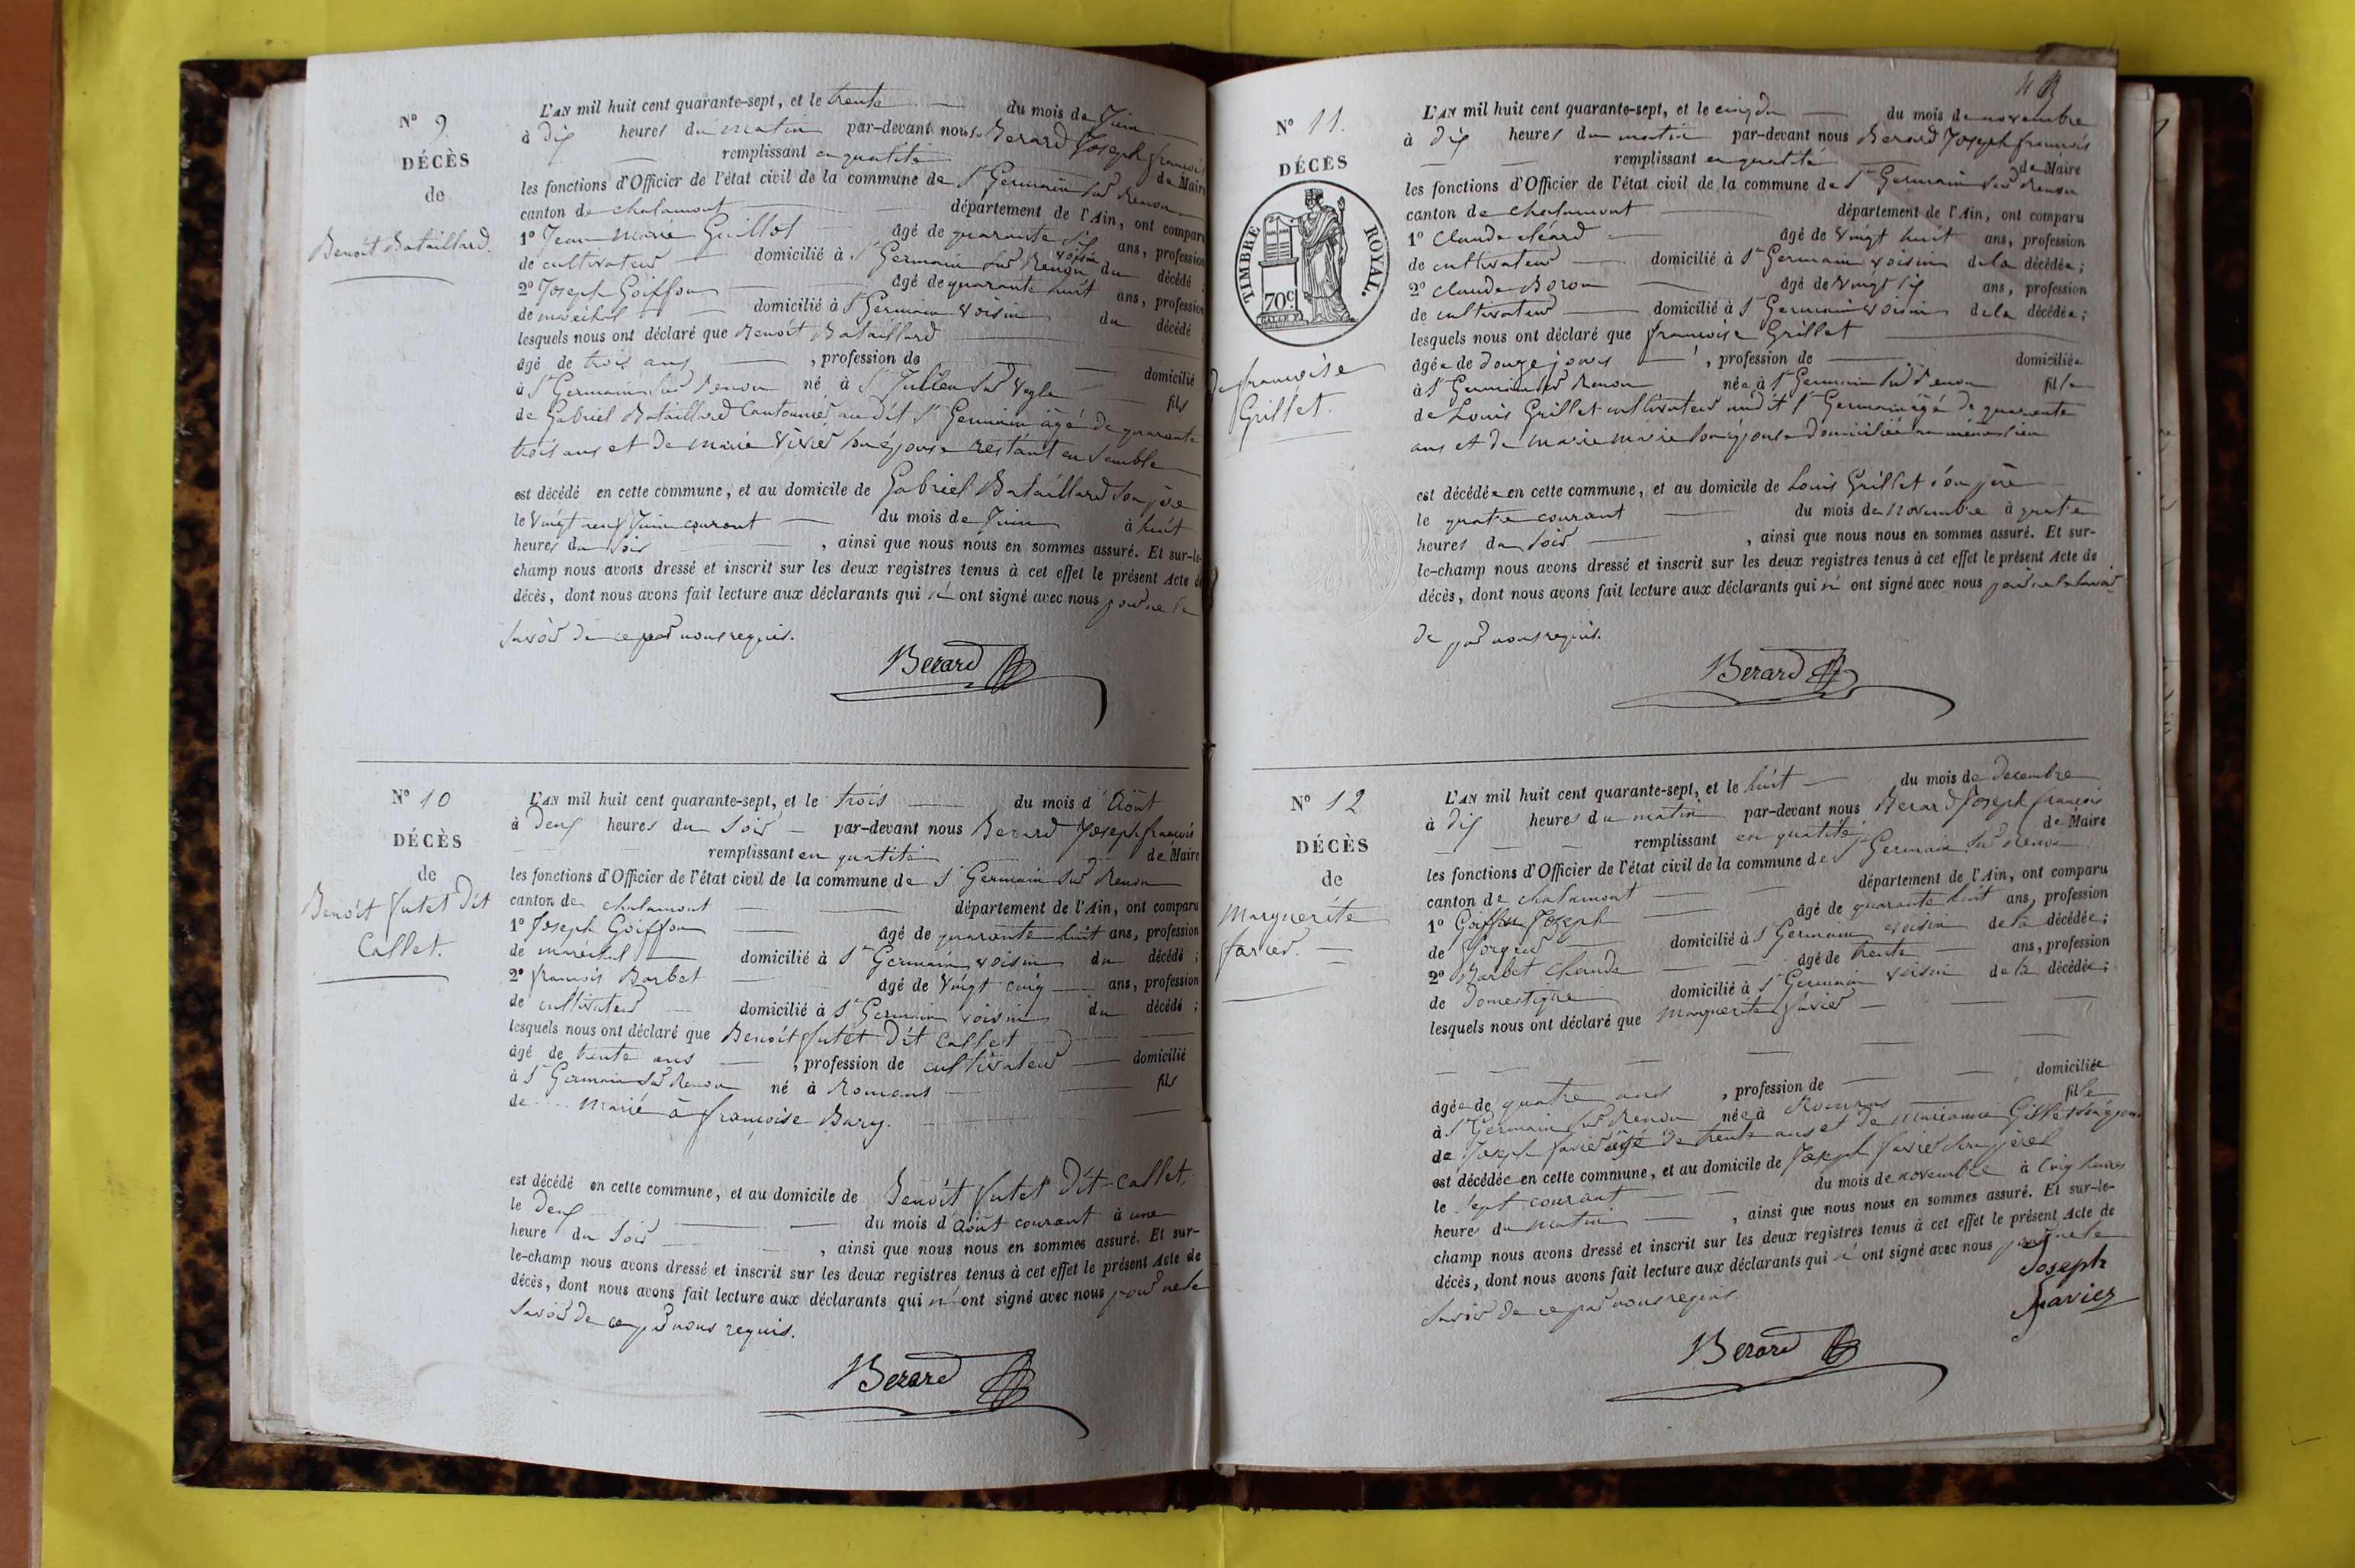 N° 9
DÉCÈS
de
Benoît Bataillard.
L'AN mil huit cent quarante-sept, et le trente du mois de Juin
à dix heures du matin par-devant nous Berard Joseph francois
remplissant en qualité de Maire
les fonctions d'Officier de l'état civil de la commune de St Germain sur Renon
canton de chalamont département de l'Ain, ont comparu
1° Jean Marie Guillot âgé de quarante six ans, profession
de cultivateur domicilié à St Germain sur Renon voisin du décédé ;
2° Joseph Goiffon âgé de quarante huit ans, profession
de maréchal domicilié à St Germain voisin du décédé
lesquels nous ont déclaré que Benoît Bataillard
âgé de trois ans , profession de domicilié
à St Germain sur Renon né à St Jullien sur Veyle fils
de Gabriel Bataillard Cantonnier au dit St Germain âgé de quarante
trois ans et de marie Vivier son épouse restant en semble
est décédé en cette commune, et au domicile de Gabriel Bataillard son père
le vingt neuf Juin courant du mois de Juin à huit
heures du soir , ainsi que nous nous en sommes assuré. Et sur-le-
champ nous avons dressé et inscrit sur les deux registres tenus à cet effet le présent Acte de
décès, dont nous avons fait lecture aux déclarants qui n' ont signé avec nous pour ne le
savoir de ce par nous requis.
Berard
N° 10
DÉCÈS
de
Benoît futet dit
Callet.
L'AN mil huit cent quarante-sept, et le trois du mois d' Août
à deux heures du soir par-devant nous Berard Joseph francois
remplissant en qualité de Maire
les fonctions d'Officier de l'état civil de la commune de St Germain sur Renon
canton de chalamont département de l'Ain, ont comparu
1° Joseph Goiffon âgé de quarante huit ans, profession
de maréchal domicilié à St Germain voisin du décédé ;
2° francois Barbet âgé de vingt cinq ans, profession
de cultivateur domicilié à St Germain voisin du décédé ;
lesquels nous ont déclaré que Benoît futet dit Callet
âgé de trente ans , profession de cultivateur domicilié
à St Germain sur Renon né à Romans fils
de marié à françoise Bary.
est décédé en cette commune, et au domicile de Benoît futet dit-Callet,
le deux du mois d'août courant à une
heure du soir , ainsi que nous nous en sommes assuré. Et sur-
le-champ nous avons dressé et inscrit sur les deux registres tenus à cet effet le présent Acte de
décès, dont nous avons fait lecture aux déclarants qui n' ont signé avec nous pour ne le
savoir de ce par nous requis.
Berard
N° 11.
DÉCÈS
TIMBRE ROYAL.
70c
de françoise
Grillet.
L'AN mil huit cent quarante-sept, et le cinq du du mois de novembre
à dix heures du matin par-devant nous Berard Joseph francois
remplissant en qualité de Maire
les fonctions d'Officier de l'état civil de la commune de St Germain sur Renon
canton de chalamont département de l'Ain, ont comparu
1° Claude âgé de vingt huit ans, profession
de cultivateur domicilié à St Germain voisin de la décédée ;
2° Claude Boron âgé de vingt six ans, profession
de cultivateur domicilié à St Germain voisin de la décédée ;
lesquels nous ont déclaré que françoise Grillet
âgée de douze jours , profession de domiciliée
à St Germain sur Renon née à St Germain sur Renon fille
de Louis Grillet cultivateur au dit St Germain âgé de quarante
ans et de marie marie son épouse domiciliée au même lieu
est décédée en cette commune, et au domicile de Louis Grillet son père
le quatre courant du mois de novembre à quatre
heures du soir , ainsi que nous nous en sommes assuré. Et sur-
le-champ nous avons dressé et inscrit sur les deux registres tenus à cet effet le présent Acte de
décès, dont nous avons fait lecture aux déclarants qui n' ont signé avec nous pour ne le savoir
de par nous requis.
Berard
N° 12
DÉCÈS
de
Marguerite
favier.
L'AN mil huit cent quarante-sept, et le huit du mois de decembre
à dix heures du matin par-devant nous Berard Joseph françois
remplissant en qualité de Maire
les fonctions d'Officier de l'état civil de la commune de St Germain sur Renon
canton de chalamont département de l'Ain, ont comparu
1° Goiffon Joseph âgé de quarante huit ans, profession
de forgeur domicilié à St Germain voisin de la décédée ;
2° Barbet Claude âgé de trente ans, profession
de domestique domicilié à St Germain voisin de la décédée ;
lesquels nous ont déclaré que Marguerite favier
âgée de quatre ans , profession de domiciliée
à St Germain sur Renon née à Romans fille
de Joseph favier âgé de trente ans et de marianne Gillet son épouse
est décédée en cette commune, et au domicile de Joseph favier son père
le sept courant du mois de novembre à cinq heures
heures du matin , ainsi que nous nous en sommes assuré. Et sur-le-
champ nous avons dressé et inscrit sur les deux registres tenus à cet effet le présent Acte de
décès, dont nous avons fait lecture aux déclarants qui n' ont signé avec nous pour ne le
savoir de ce par nous requis.
Joseph
favier
Berard